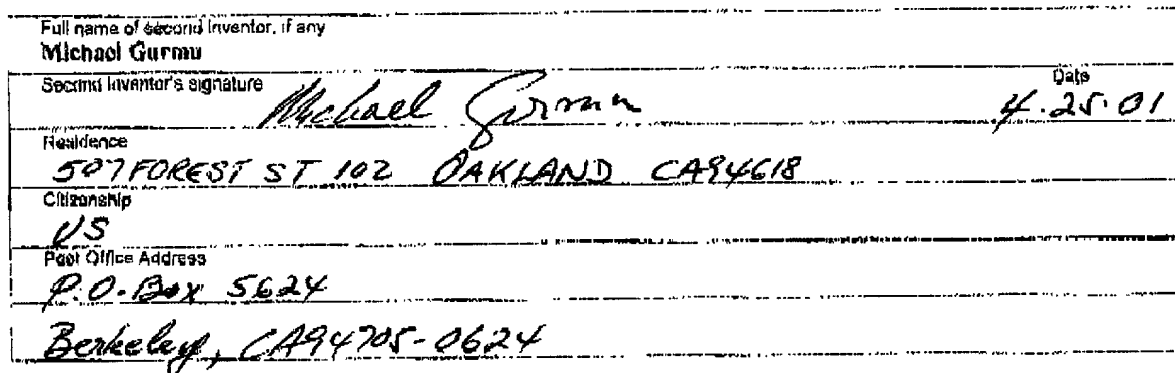 Full name of second inventor, if any
Michael Gurmu
Second Inventor's signature Michael Gurmu Date
4.25.01
Residence
507 FOREST ST 102 OAKLAND CA94618
Citizenship
US
Post Office Address
P.O. Box 5624
Berkeley, CA94705-0624